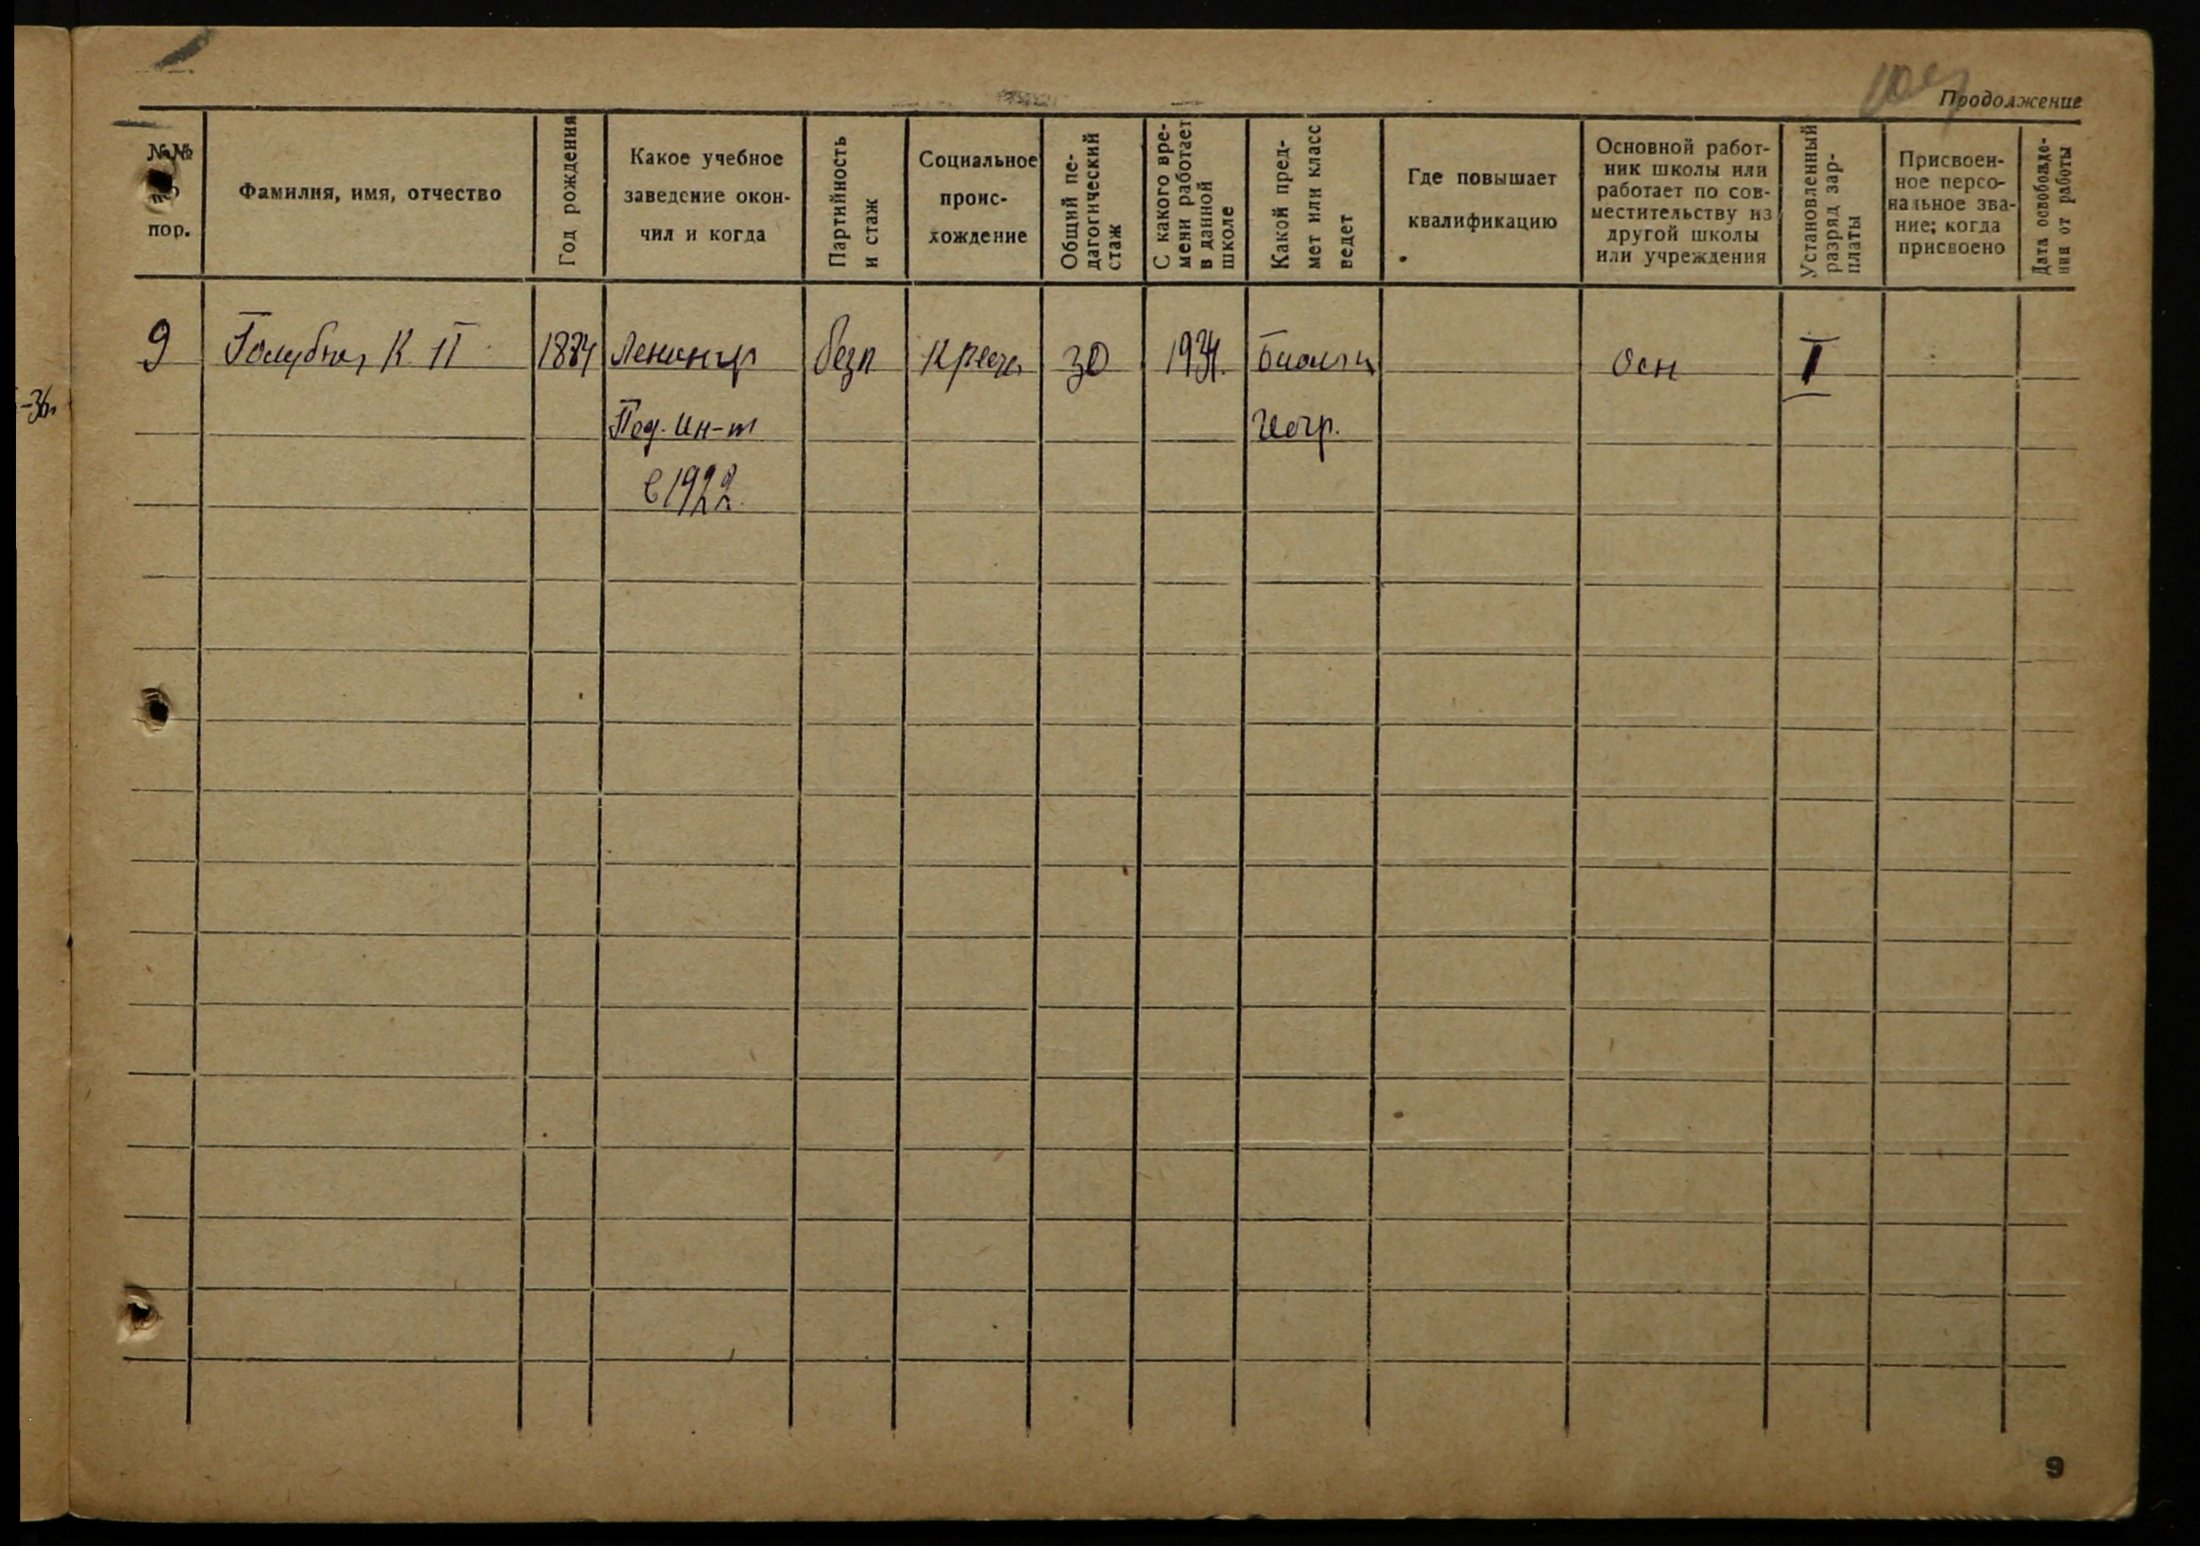 Продолжение
№№ по пор.
Фамилия, имя, отчество
Год рождения
Какое учебное
заведение окон-
чил и когда
Партийность
и стаж
Социальное
проис-
хождение
Общий пе-
дагогический
стаж
С какого вре-
мени работает
в данной
школе
Какой пред-
мет или класс
ведет
Где повышает
квалификацию
Основной работ-
ник школы или
работает по сов-
местительству из
другой школы
или учреждения
Установленный
разряд зар-
платы
Присвоен-
ное персо-
нальное зва-
ние; когда
присвоено
Дата освобожде-
ния от работы
9 К. П. Ленингр безп 30 Осн I
Пед. Ин-т Геогр.
в 1922.
9